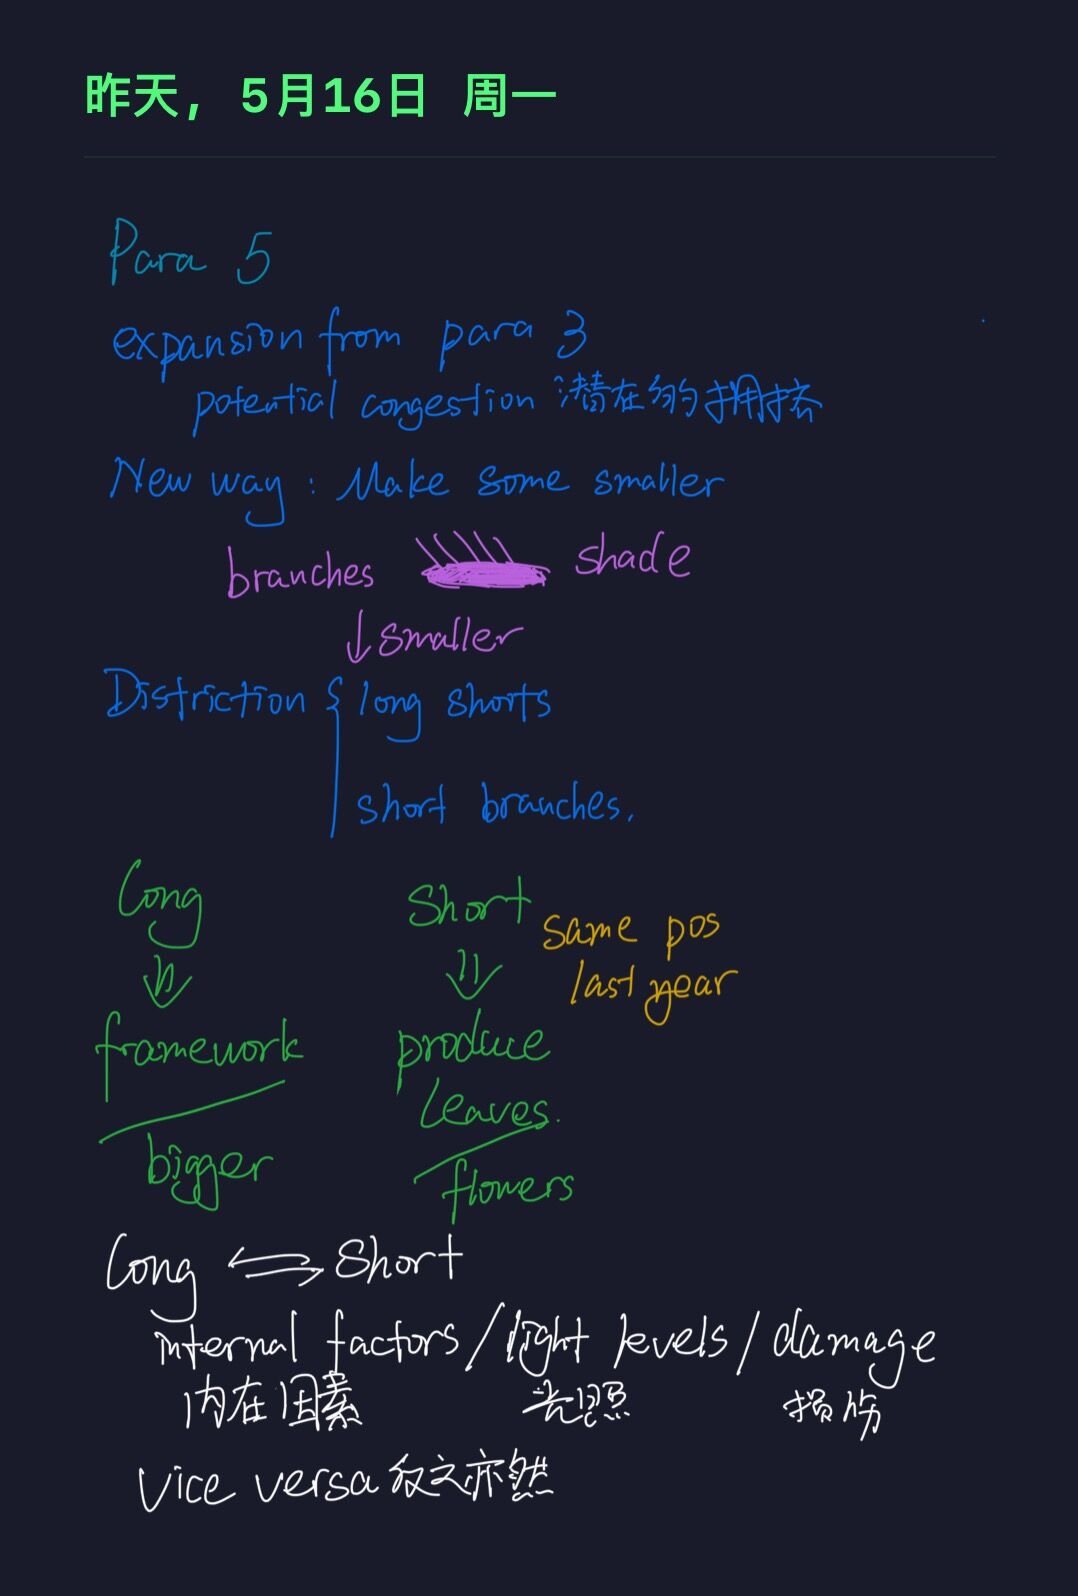 昨天，5月16日 周一
Para 5
expansion from para 3
potential congestion 潜在的拥挤
New way: Make some smaller
branches shade
↓ smaller
Distriction { long shorts
short branches.
Long Short same pos
last year
framework produce
leaves.
bigger flowers
Long ⇌ Short
internal factors / light levels / damage
内在因素 光照 损伤
vice versa 反之亦然